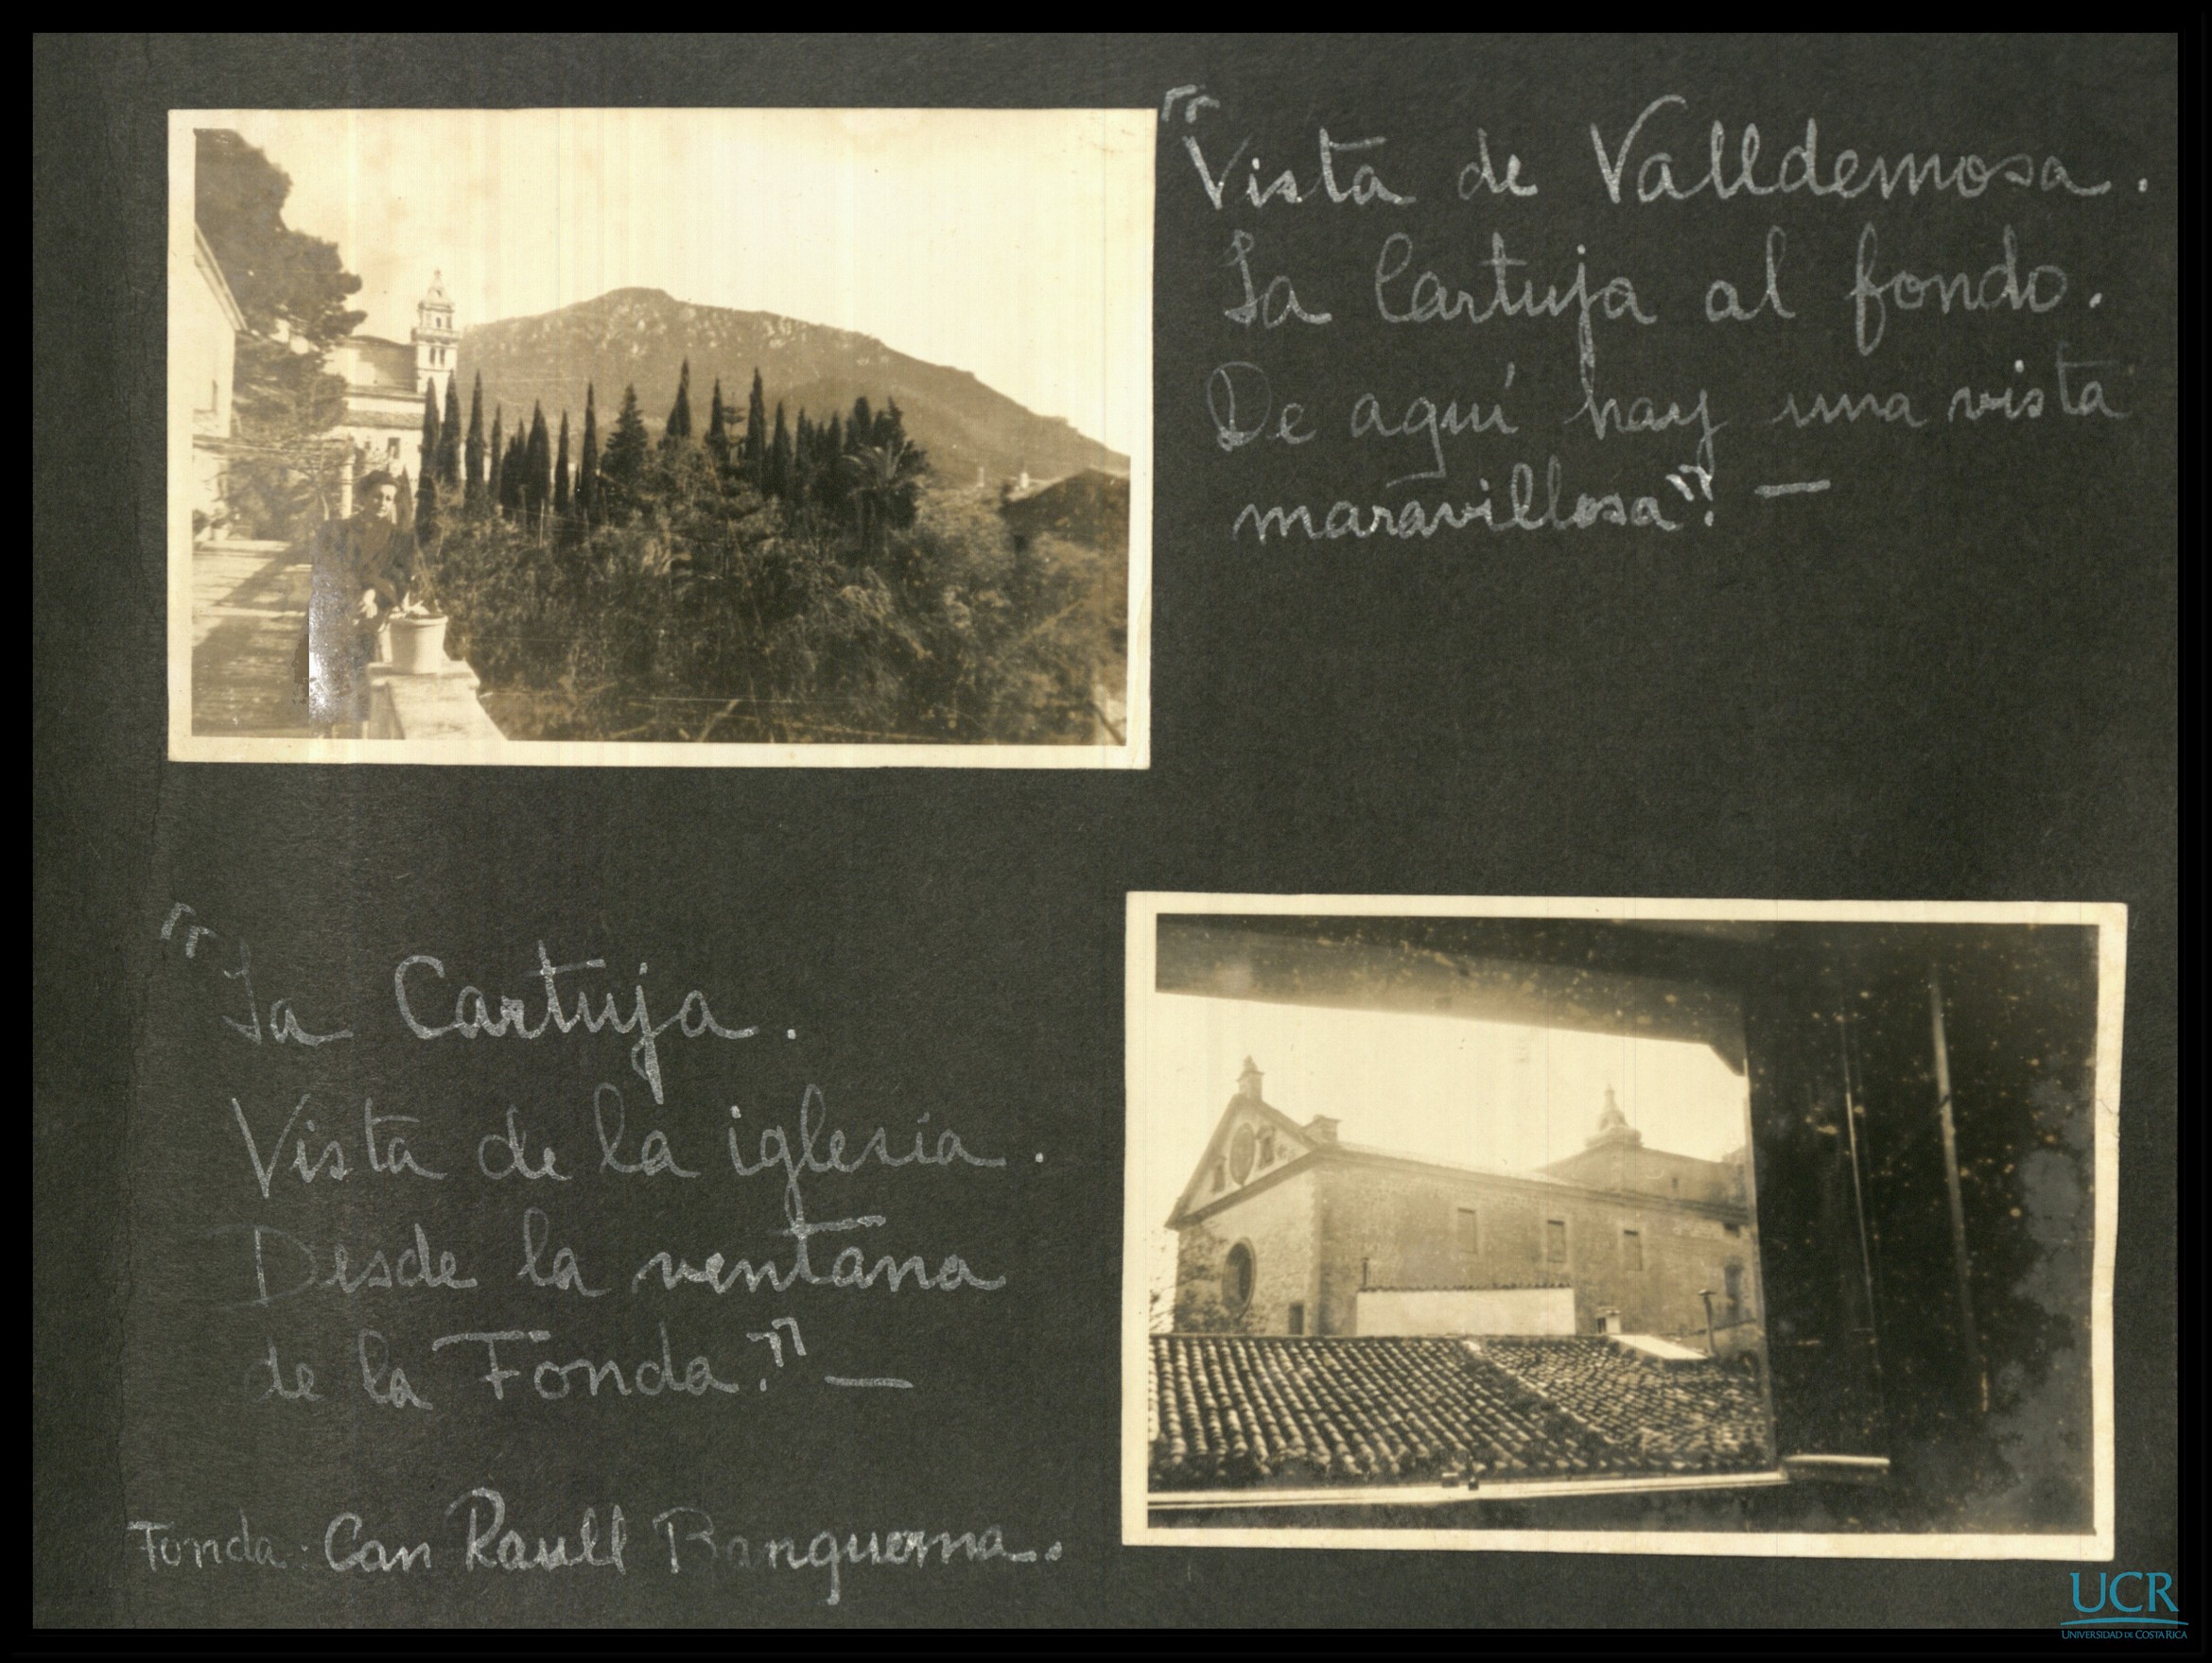 "Vista de Valldemosa.
La Cartuja al fondo.
De aquí hay una vista
maravillosa". —
"La Cartuja.
Vista de la iglesia.
Desde la ventana
de la Fonda." —
Fonda: Can Raull Banquerna.
UCR
UNIVERSIDAD DE COSTA RICA